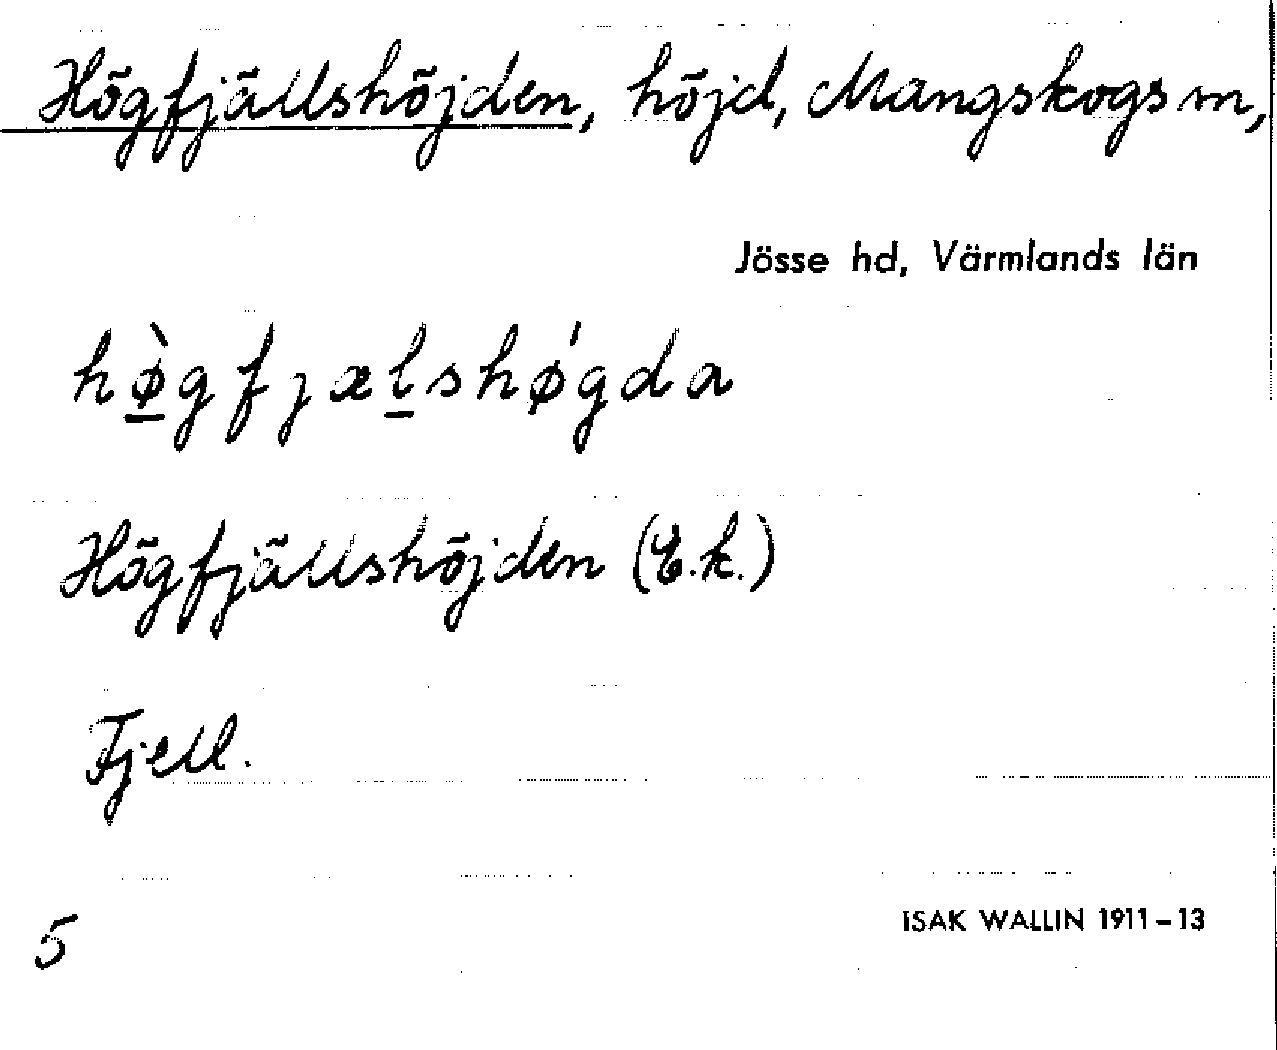 Högfjällshöjden, höjd, Mangskogs sn,
Jösse hd, Värmlands län
hø̲̀gfjæl̲shǿgda
Högfjällshöjden (E.k.)
Fjell.
5
ISAK WALLIN 1911–13